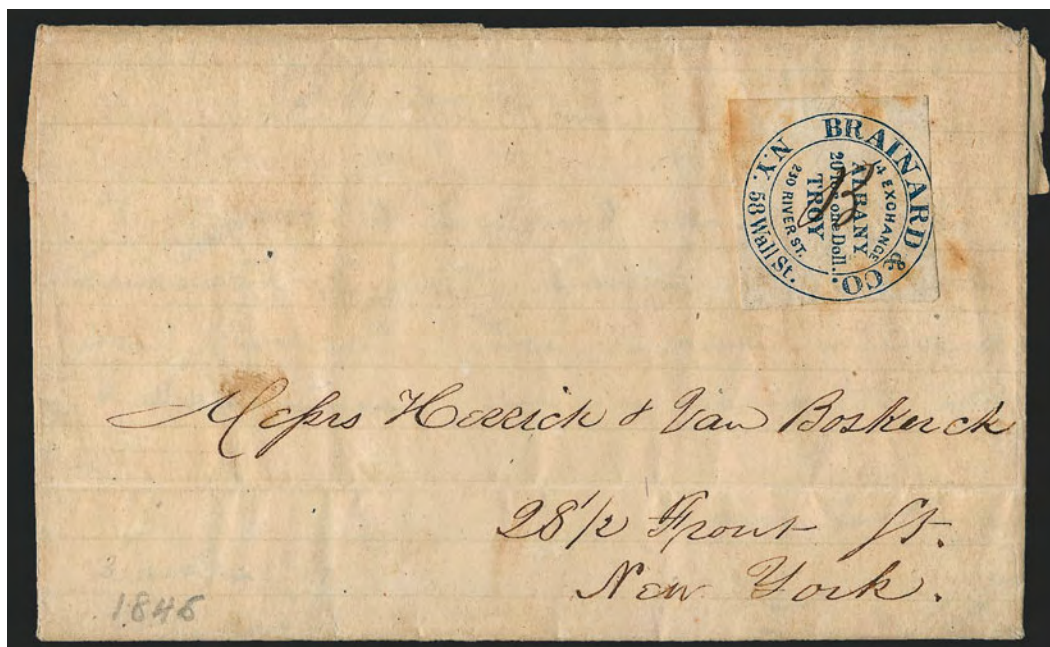 BRAINARD & CO.
N.Y. 58 Wall St.
EXCHANGE
ALBANY
20 for one Doll.
TROY
230 RIVER ST.
B
Messrs Herrick & Van Boskerck
28 1/2 Front St.
New York.
1845